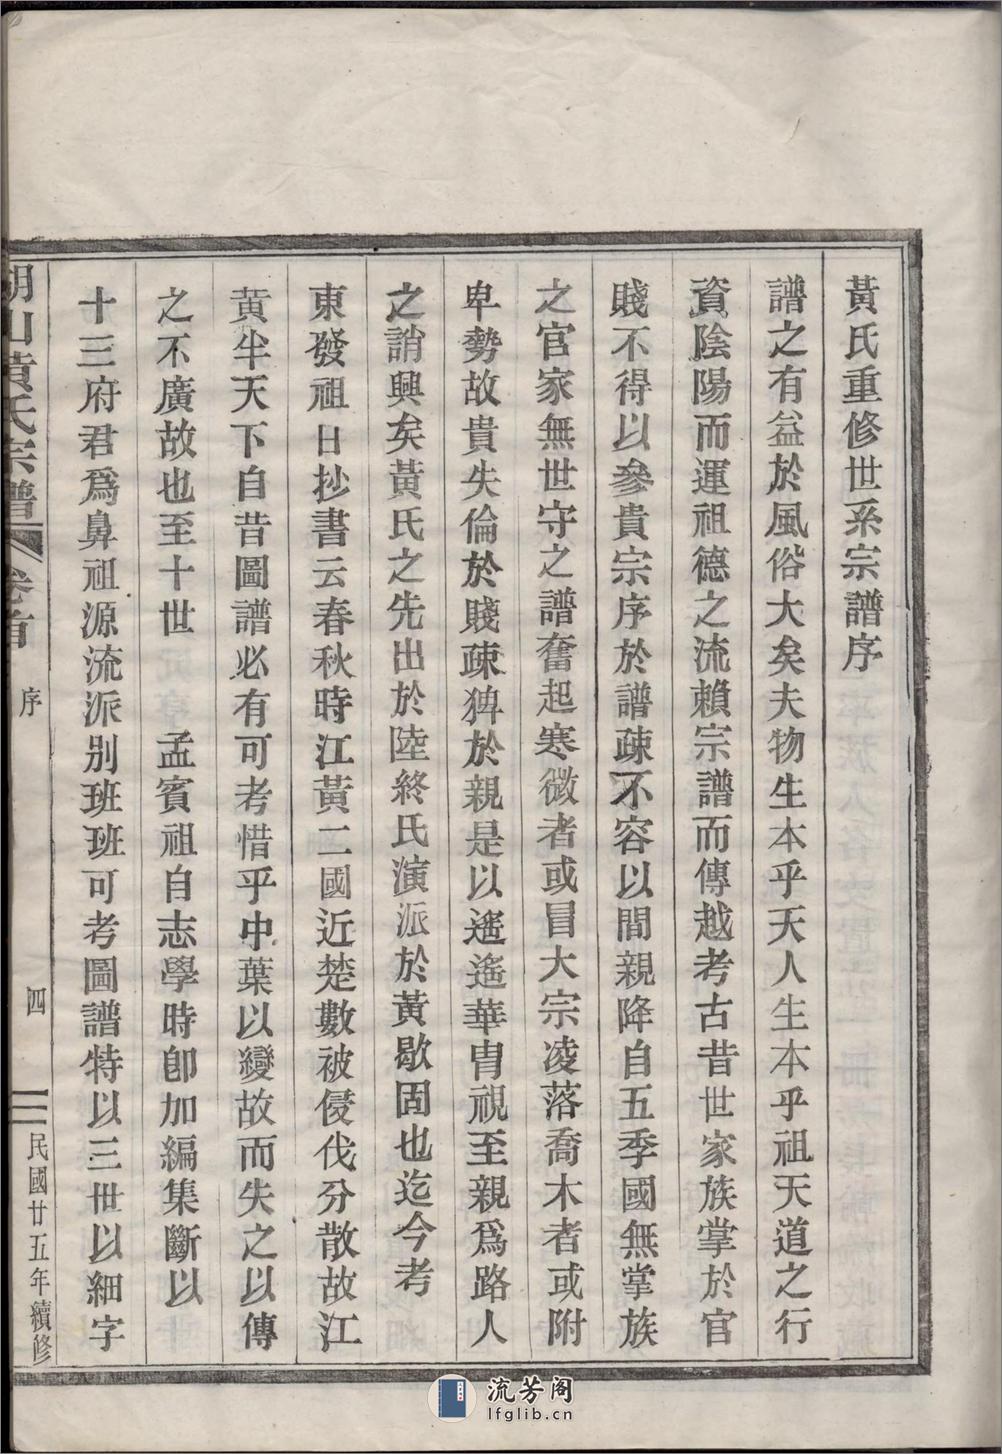 黃氏重修世系宗譜序
譜之有益於風俗大矣夫物生本乎天人生本乎祖天道之行
資陰陽而運祖德之流賴宗譜而傳越考古昔世家族掌於官
賤不得以參貴宗序於譜疎不容以間親降自五季國無掌族
之官家無世守之譜奮起寒微者或冒大宗凌落喬木者或附
卑勢故貴失倫於賤疎猈於親是以遙遙華胄視至親爲路人
之誚興矣黃氏之先出於陸終氏演派於黃歇固也迄今考
東發祖日抄書云春秋時江黃二國近楚數被侵伐分散故江
黃半天下自昔圖譜必有可考惜乎中葉以變故而失之以傳
之不廣故也至十世 孟賓祖自志學時卽加編集斷以
十三府君爲鼻祖源流派别班班可考圖譜特以三世以細字
胡山黃氏宗譜 卷首 序 四 民國廿五年續修
流芳阁
lfglib.cn